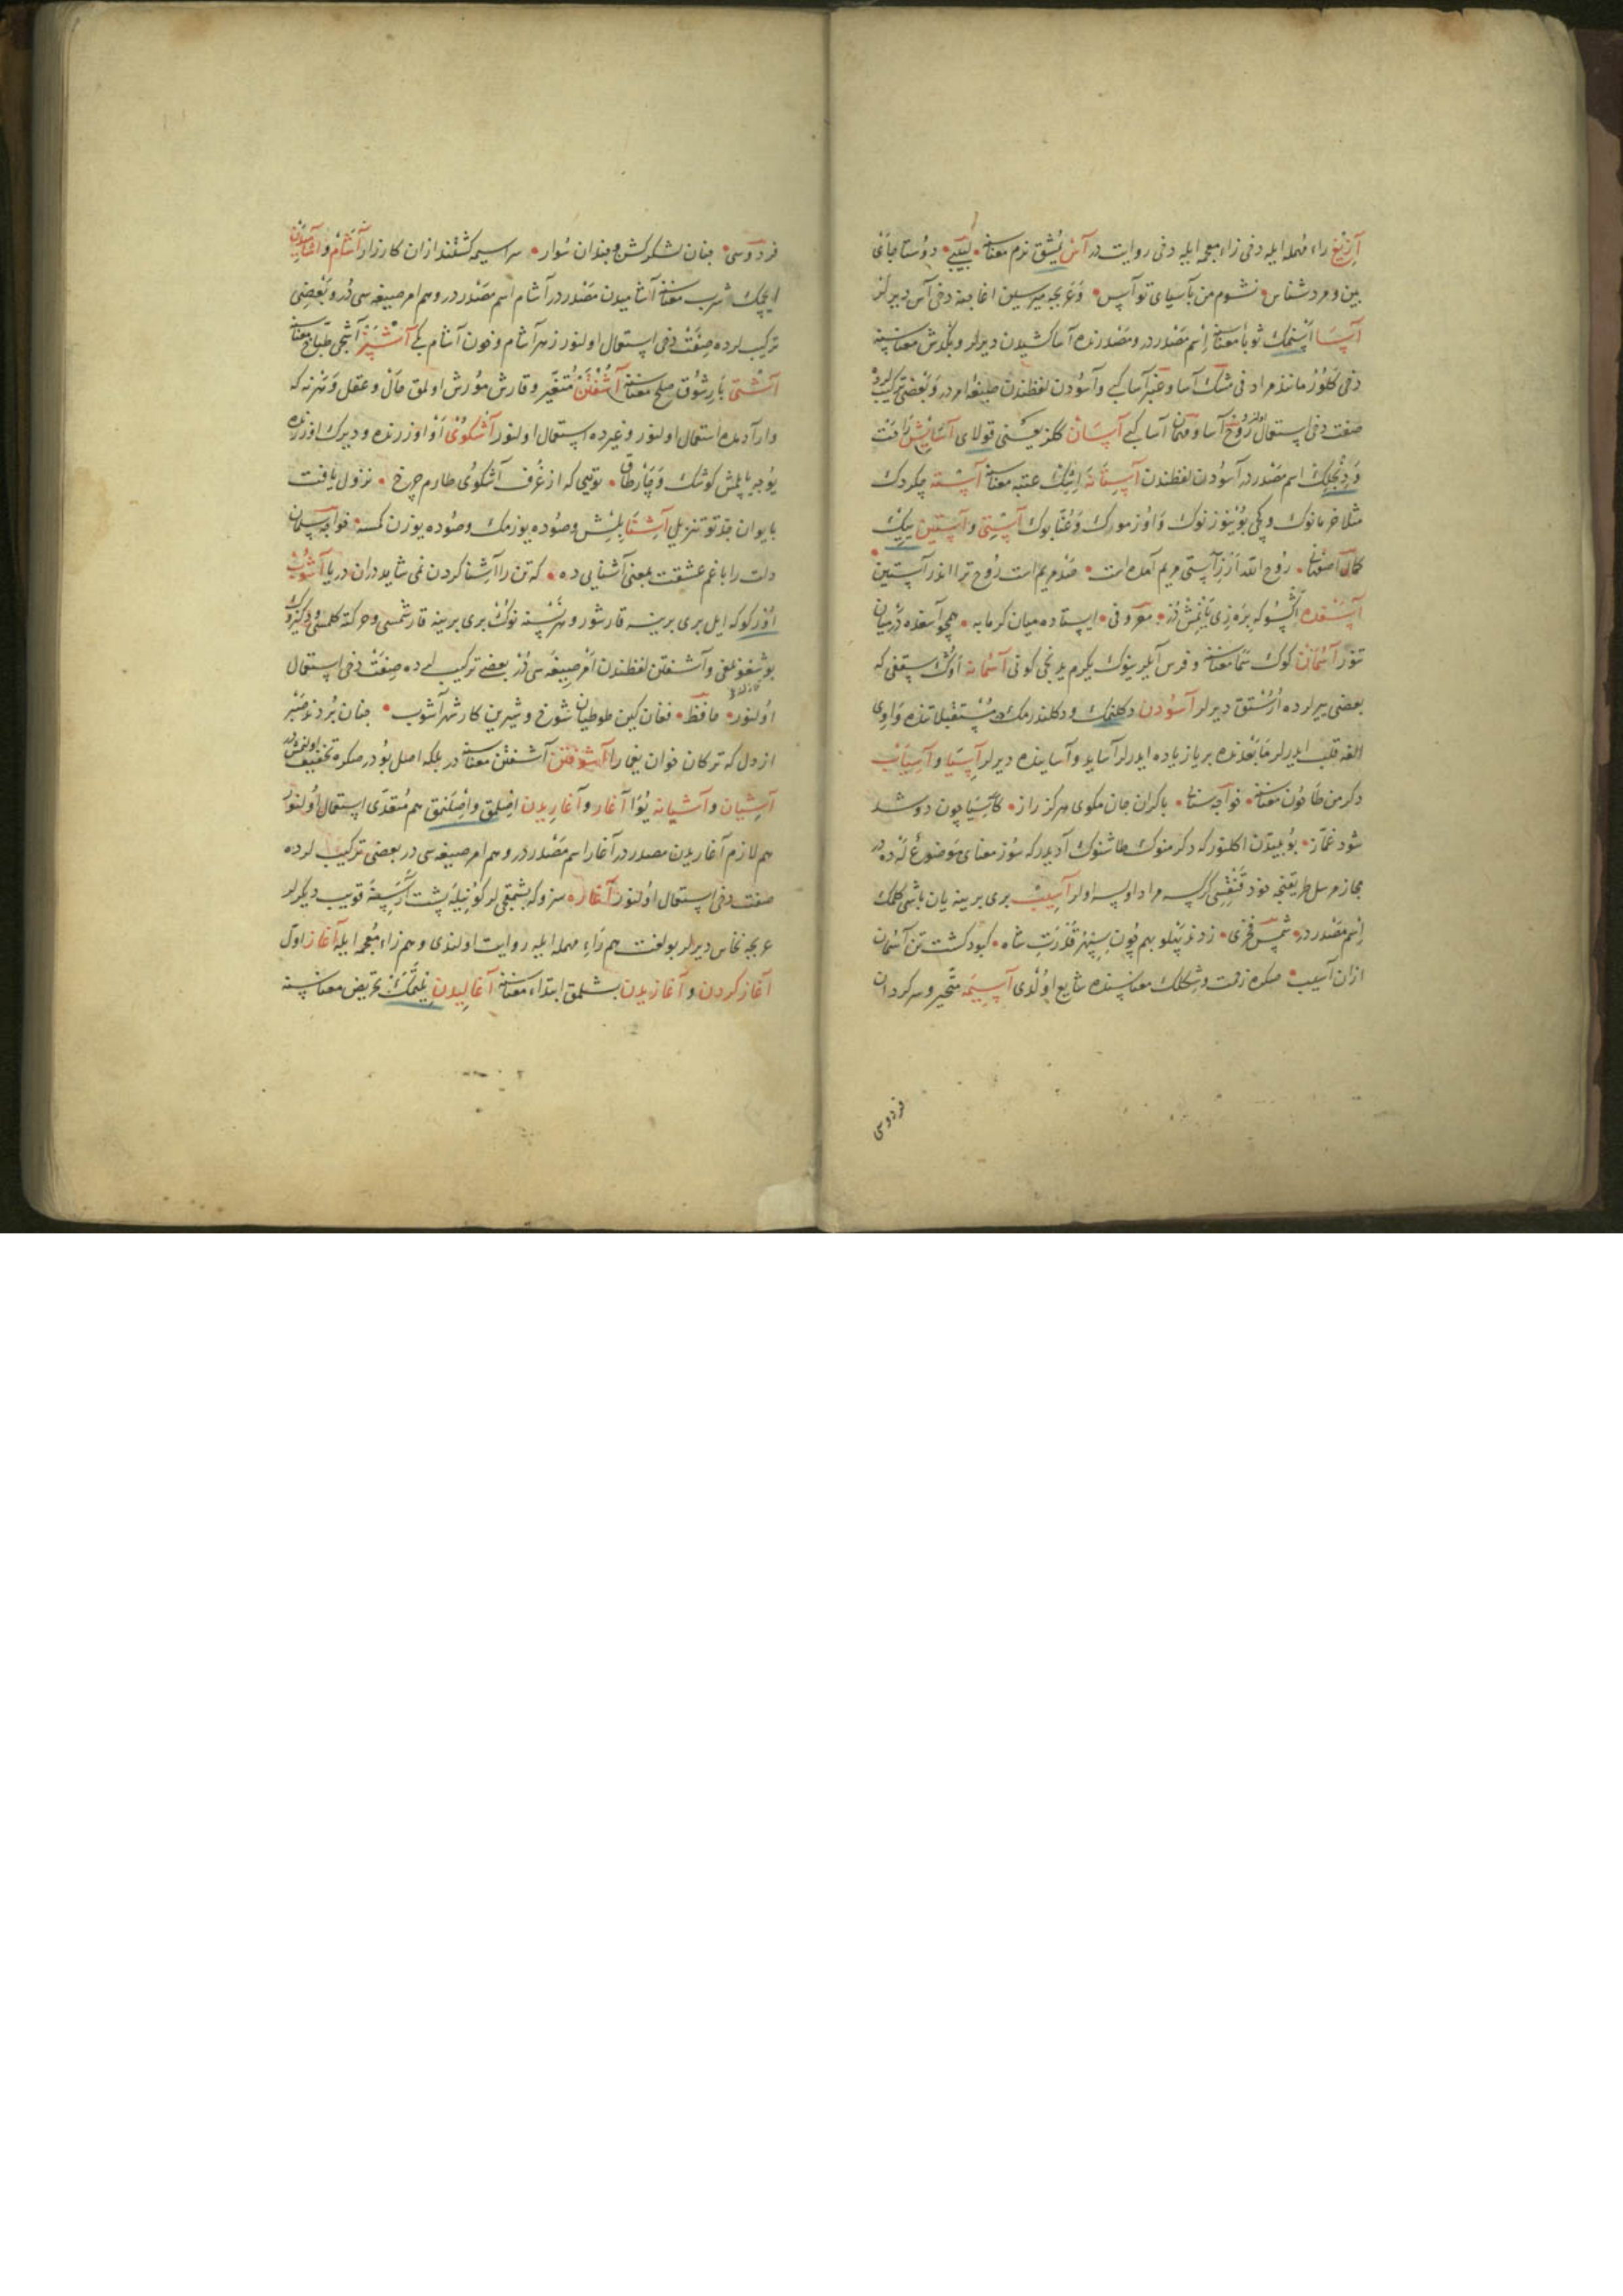 آزیغ راء مهمله ایله دخی زاء معجمه ایله دخی روایت در آس یشق نرم معناسنه لبیبی دوستا جای
بین و مرد شناس نشوم من بآسیای تو آس و عربجه میرسین اغاجنه دخی آس دیرلر
آسا اسنمك ثوبا معناسنه اسم مصدردر و مصدرنده آسا کشیدن دیرلر و بکزش معناسنه
دخی کلور مانند مراد فی مشك آسا و عنبر آسا کبی و آسودن لفظندن صیغۀ امردر و بعضی ترکیبلرده
صفت دخی استعمال اولنور روح آسا و آسا کبی آسان کلز یعنی قولای آسایش رافت
و دنجلك اسم مصدردر آسودن لفظندن آستانه اشك عتبه معناسنه آسته چکردك
مثلا خرمانوك و بوینوزنوك و اوزمورك و عنابوك آستی و آستین یيك
کمال اصفهان روح الله ازر آستی مریم آمده است صد مریم است روح ترا اندر آستین
آسغده اکسو که بره ذی یانمش در معروفی ایستاده میان کرمابه همچو آسغده در میان
تنور آسمان کوك سما معناسنه و فرس آیلرینوك یکرم یدنجی کونی آسمانه اوك سقفی که
بعضی یرلرده اوستق دیرلر آسودن دکلنمك و دکلندرمك مستقبلاتنده واوی
الفه قلب ایدرلر مابعدنده بر یا زیاده ایدرلر آساید و آساینده دیرلر آسیا و آسیاب
دکرمن طاحون معناسنه خواجه سنا با کران جان مکوی هرکز راز کآسیا چون دو شد
شود غماز بو بیتدن اکلنور که دکرمنوك طاشنوك آدیدر که سوز معنای موضوع لهده در
مجاز مرسل طریقنجه خود قنقسی کرسه مراد اولسه اولر آسیب بری برینه یان باشی کلمك
اسم مصدردر شمس فخری زدند پهلو بهم چون سپهر قدرت شاه کبود کشت تن آسمان
ازان آسیب صکره زفت و شکلك معناسنده شایع اولدی آسیمه متحیر و سرکردان
فردوسی
فردوسی چنان لشکر کش و چندان سوار سراسیمه کشتند ازان کارزار آشام و آشامیدن
ایچمك شرب معناسنه آشامیدن مصدردر آشام اسم مصدردر و هم امر صیغه سی در و بعضی
ترکیبلرده صفت دخی استعمال اولنور زهر آشام و خون آشام کبی آشپز آشجی طباخ معناسنه
آشتی بارشوق صلح معناسنه آشفتن متغیر و قارش مورش اولمق حال و عقل و هر نه که
وار آدمده استعمال اولنور و غیرده استعمال اولنور آشکوی او اوزرنده و دیرك اوزرنده
یوجه یاپلمش کوشك و چارطاق تویی که از غرف آشکوی طارم چرخ نزول یافت
بایوان جد تو تنزیل آشنا بلش و صوده یوزمك و صوده یوزن کمسه خواجه سلمان
دلت را با غم عشقت بمعنی آشنایی ده که تن را آشنا کردن نمی شاید دران دریا آشوب
اوزرکو که ایل بری برینه قارشور و هر نسنه نوك بری برینه قارشمسی و حرکته کلمسی و دکزوك
بوشغونلغی و آشفتن لفظندن امر صیغه سی در بعضی ترکیبلرده صفت دخی استعمال
اولنور حافظ فغان کین لولیان شوخ و شیرین کار شهر آشوب چنان بردند صبر
از دل که ترکان خوان یغما را آشوفتن آشفتن معناسنه در بلکه اصل بودر صکره تخفیف اولنمشدر
آشیان و آشیانه یوا آغار و آغاریدن اصلمق و اصلنمق هم متعدی استعمال اولنور
هم لازم آغاریدن مصدردر آغار اسم مصدردر و هم امر صیغه سی در بعضی ترکیبلرده
صفت دخی استعمال اولنور آغاره سزو که بشمقجیلر کونیله پشت ارسنه قویب دیکرلر
عربجه نحاس دیرلر بو لغت هم راء مهمله ایله روایت اولندی و هم زاء معجمه ایله آغاز اول
آغاز کردن و آغازیدن بشلمق ابتداء معناسنه آغالیدن یلتمك تحریض معناسنه